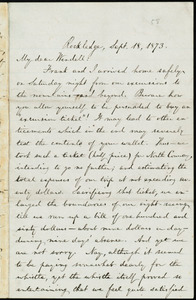 Rockledge, Sept. 18, 1873.
My dear Wendell:
Frank and I arrived home safely,
on Saturday night from our excursions to
the near and beyond. Beware how
you allow yourself to be persuaded to buy an
"excursion ticket"! It may lead to other en-
ticements which in the end may seriously
test the contents of your wallet. Fran
took such a ticket (half price) for North Conway,
intending to go no further, and estimating the
total expenses of our trip at not exceeding
only dollars. Sacrificing that ticket, we en-
larged the boundaries of our sight-seeing,
till we ran up a bill of one hundred and
sixty dollars—about nine dollars a day—
during nine days' absence. And yet
are not sorry. Nay, although it seemed
to be paying somewhat dearly for the
whistle, yet the whistle itself proved so
entertaining, that we feel quite satisfied.